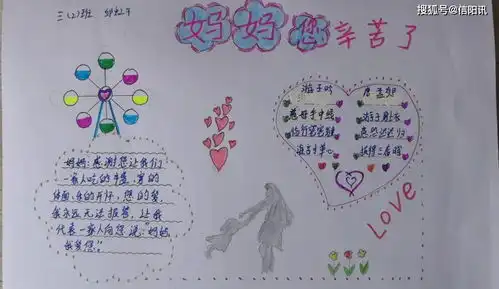 搜狐号@信阳讯
三(2)班
妈妈您辛苦了
妈妈:感谢您让我们
一家人吃的丰盛,穿的
体面,玩的开怀,您的爱
我永远无法报答,让我
代表一家人向您说:"妈妈
我爱您"
游子吟
唐 孟郊
慈母手中线
游子身上衣
临行密密缝
意恐迟迟归
报得三春晖
Love